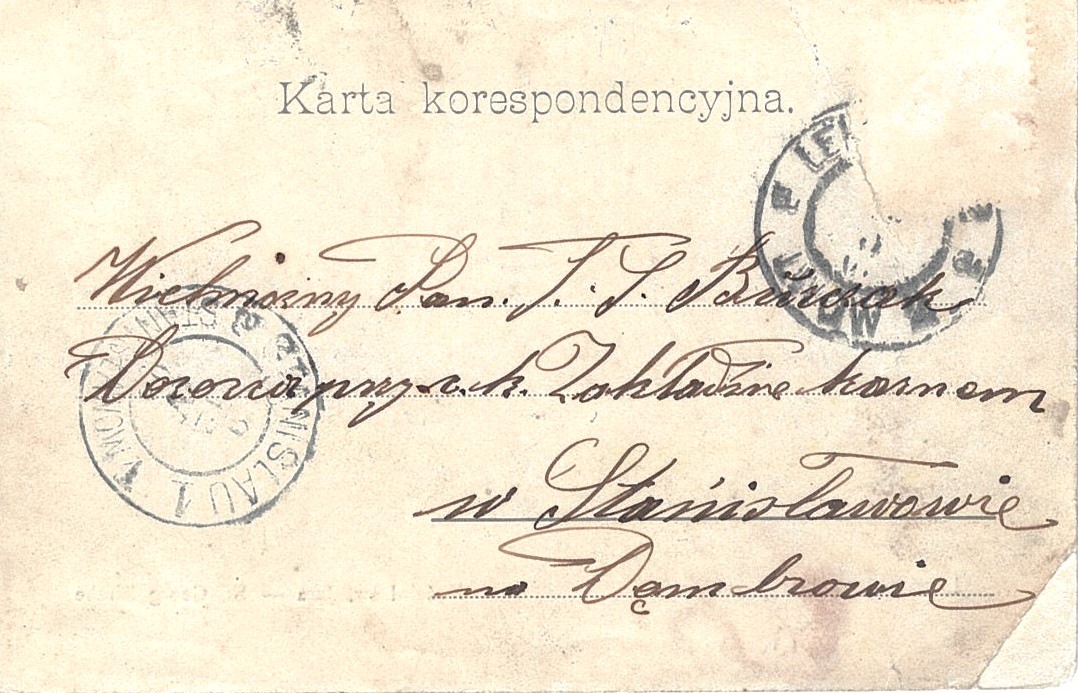 Karta korespondencyjna.
LE
LWÓW
Wielmożny Pan. J. S. Burszak
Dozorca przy c. k. Zakładzie karnem
w Stanisławowie
na Dąmbrowie
STANISLAU 1